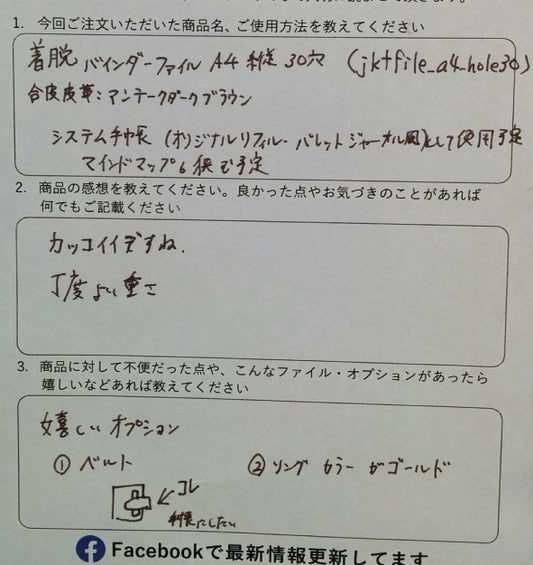 1. 今回ご注文いただいた商品名、ご使用方法を教えてください
着脱 バインダーファイル A4 縦 30穴 (jktfile_a4_hole30)
合皮皮革:アンテークダークブラウン
システム手帳 (オリジナルリフィル・バレットジャーナル風)として使用予定
マインドマップも 予定
2. 商品の感想を教えてください。良かった点やお気づきのことがあれば
何でもご記載ください
カッコイイですね.
丁度よい重さ
3. 商品に対して不便だった点や、こんなファイル・オプションがあったら
嬉しいなどあれば教えてください
嬉しいオプション
① ベルト ② リング カラー がゴールド
コレ
にしたい
Facebookで最新情報更新してます